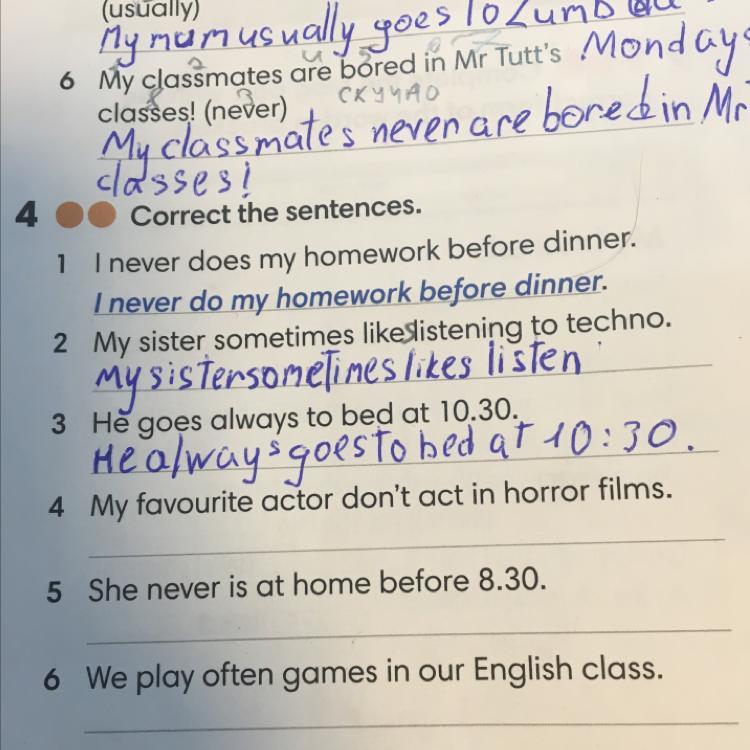 (usually)
My mum usually goes to Zumba
6 My classmates are bored in Mr Tutt's Mondays
classes! (never) скучно
My classmates never are bored in Mr
classes!
4 Correct the sentences.
1 I never does my homework before dinner.
I never do my homework before dinner.
2 My sister sometimes likes listening to techno.
My sister sometimes likes listen
3 He goes always to bed at 10.30.
He always goes to bed at 10:30.
4 My favourite actor don't act in horror films.
5 She never is at home before 8.30.
6 We play often games in our English class.